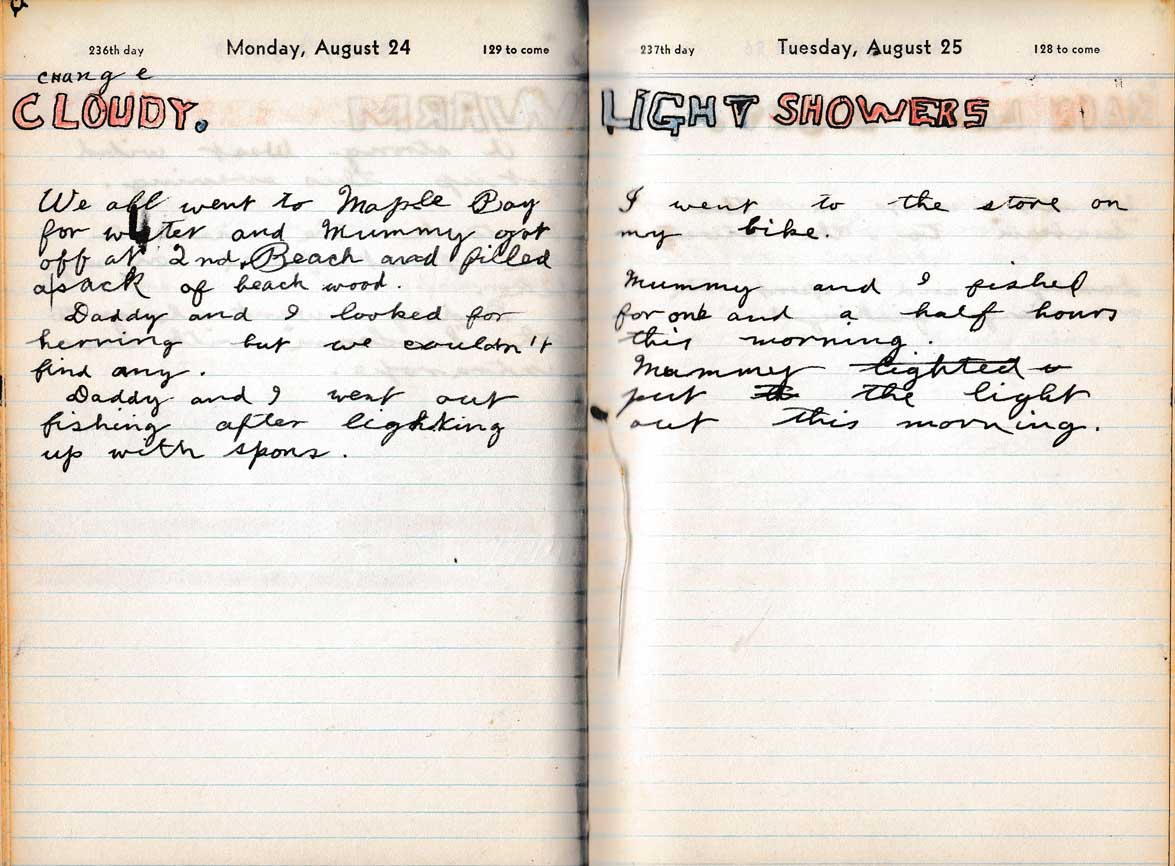 236th day Monday, August 24 129 to come
change
CLOUDY.
We all went to Maple Bay
for water and Mummy got
off at 2nd, Beach and filled
a sack of beach wood.
Daddy and I looked for
herring but we couldn't
find any.
Daddy and I went out
fishing after lighting
up with spons.
237th day Tuesday, August 25 128 to come
LIGHT SHOWERS
I went to the store on
my bike.
Mummy and I fished
for one and a half hours
this morning.
Mummy lighted
put the light
out this morning.